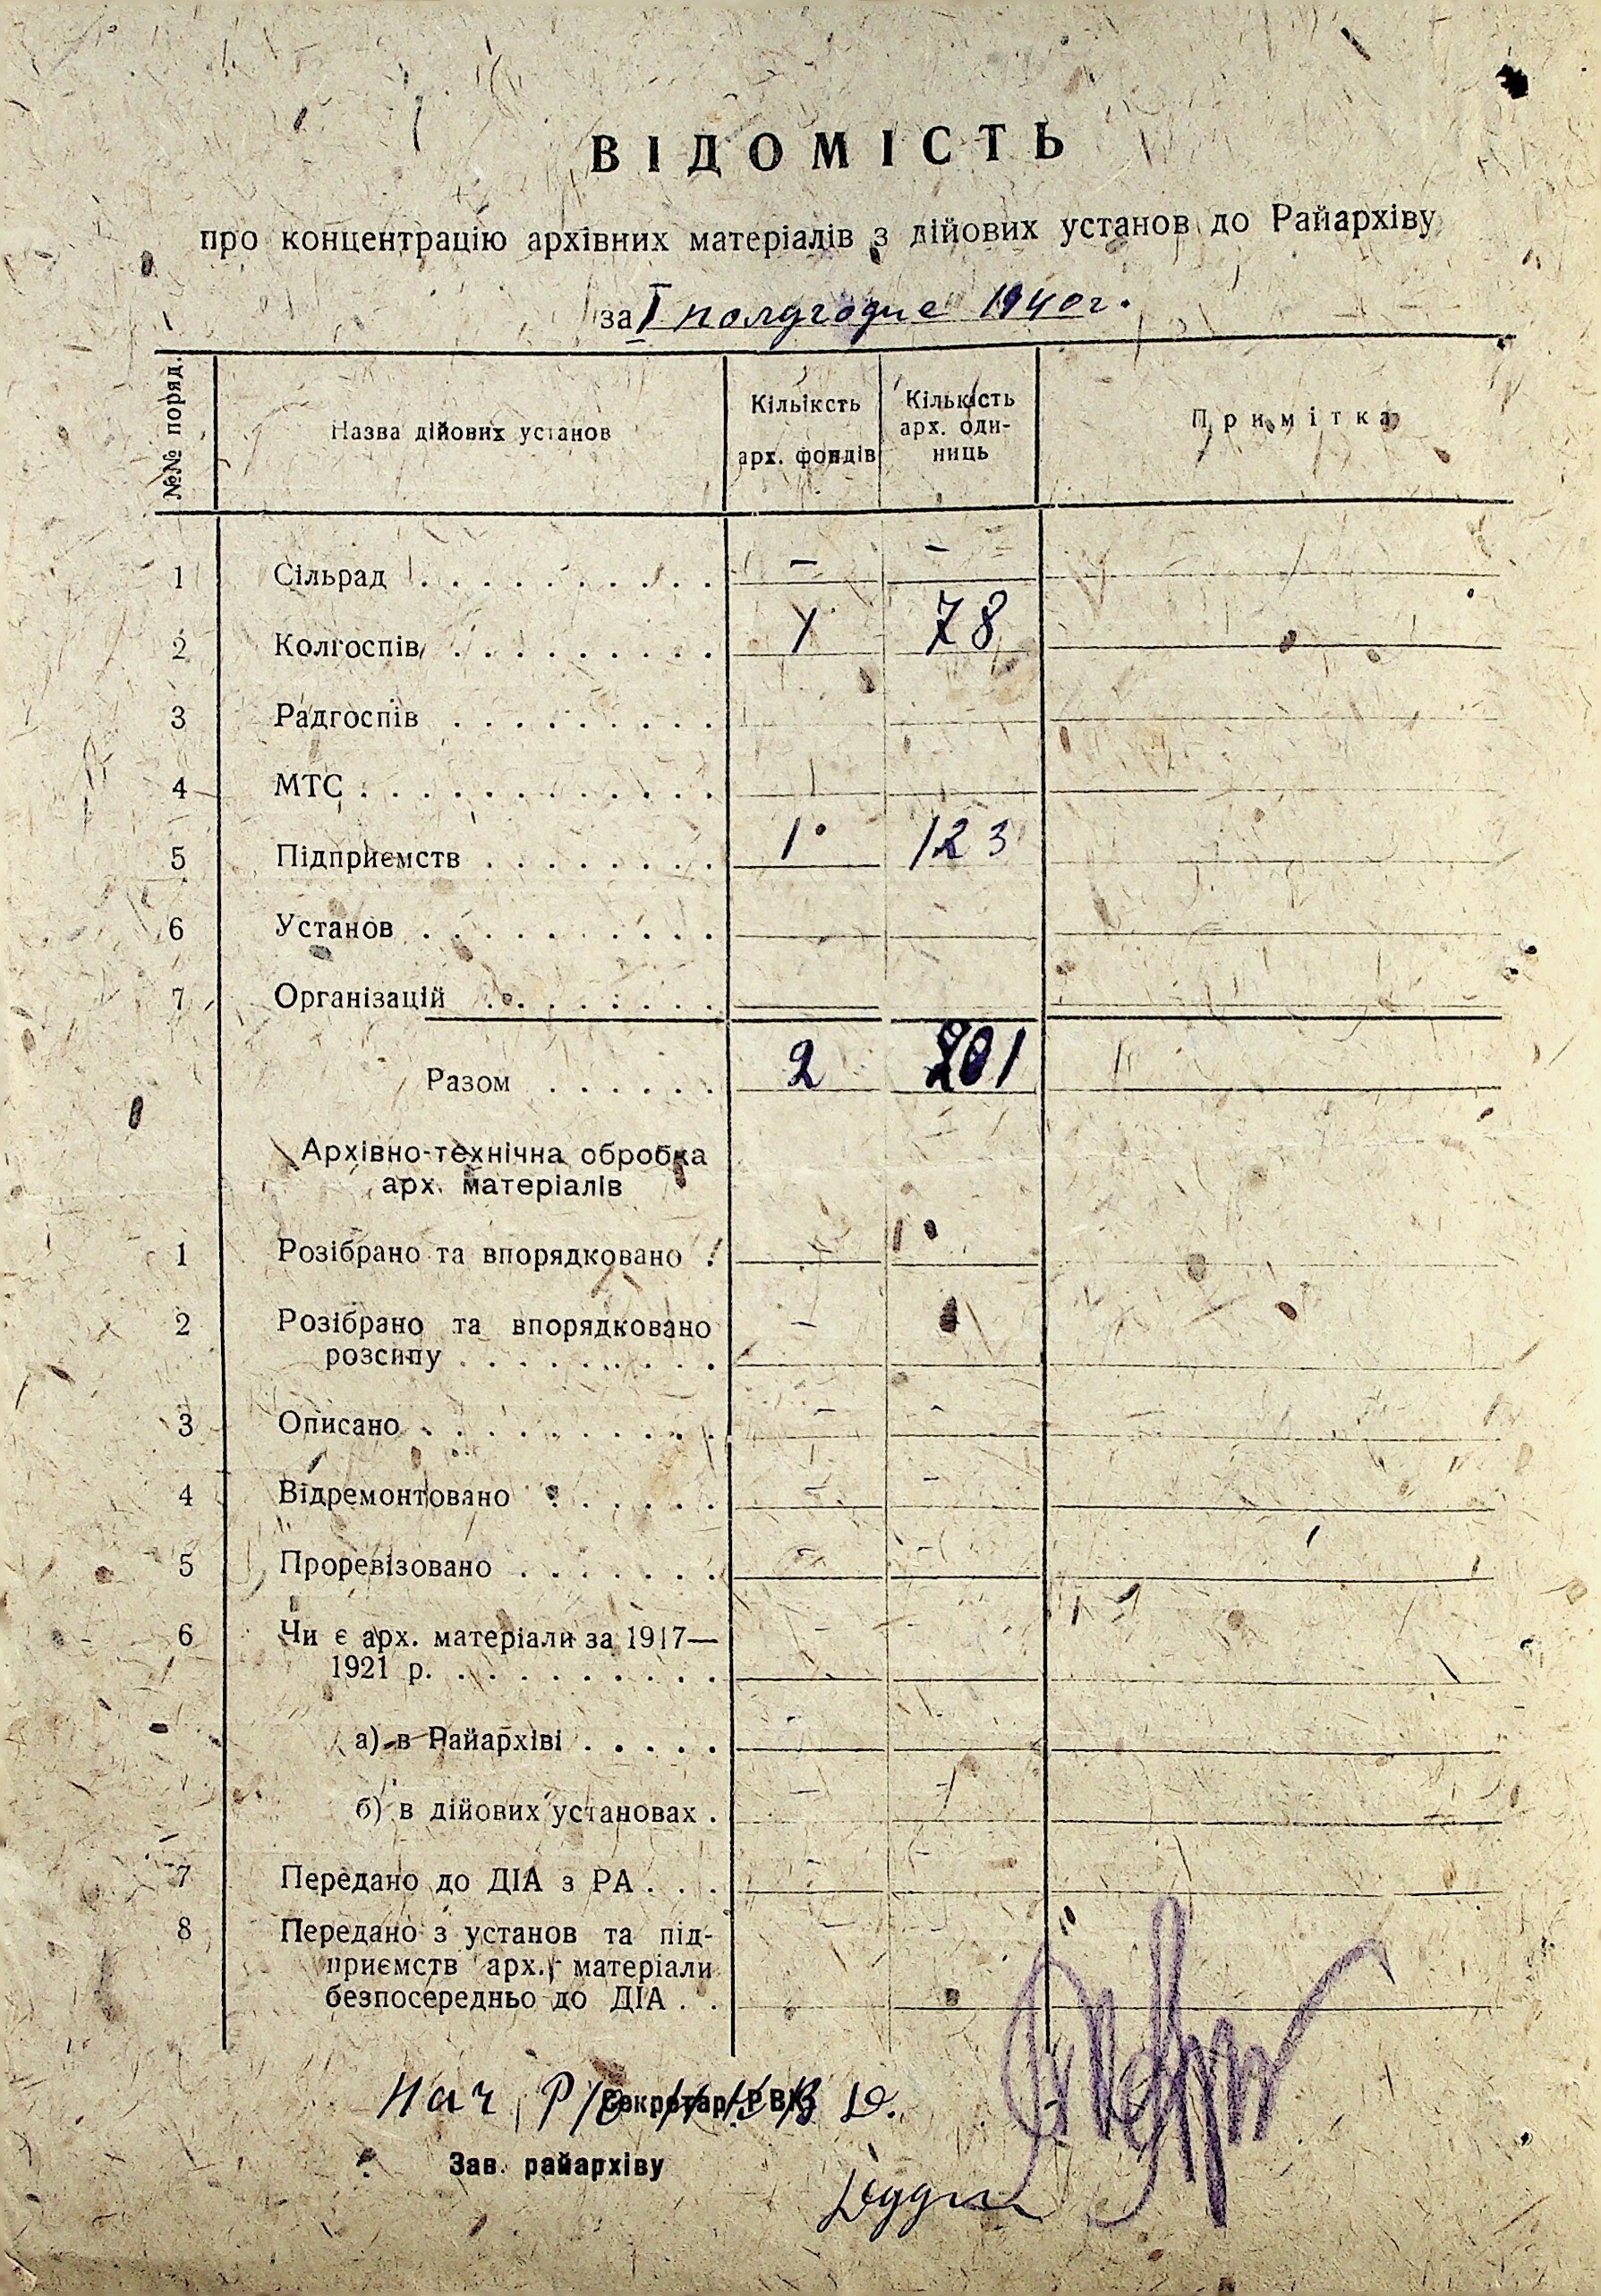 ВІДОМІСТЬ
про концентрацію архівних матеріалів з дійових установ до Райархіву
за I полугодие 1940 г.
№№ поряд. Назва дійових установ Кільіксть арх. фондів Кількість арх. оди-ниць Примітка
1 Сільрад . . . . . . . . . . – –
2 Колгоспів . . . . . . . . . 1 78
3 Радгоспів . . . . . . . . .
4 МТС . . . . . . . . . . . .
5 Підприємств . . . . . . . . 1 123
6 Установ . . . . . . . . . .
7 Організацій . . . . . . . .
Разом . . . . . . 2 201
Архівно-технічна обробка
арх. матеріалів
1 Розібрано та впорядковано .
2 Розібрано та впорядковано –
розсипу . . . . . . . . .
3 Описано . . . . . . . . . . – –
4 Відремонтовано . . . . . . – –
5 Проревізовано . . . . . . . – –
6 Чи є арх. матеріали за 1917— – –
1921 р. . . . . . . . . . .
а) в Райархіві . . . . . –
б) в дійових установах . – –
7 Передано до ДІА з РА . . . – –
8 Передано з установ та під- –
приємств арх. матеріали
безпосередньо до ДІА . .
Нач. Р/о НКВД.
Секретар РВК
Зав. райархіву